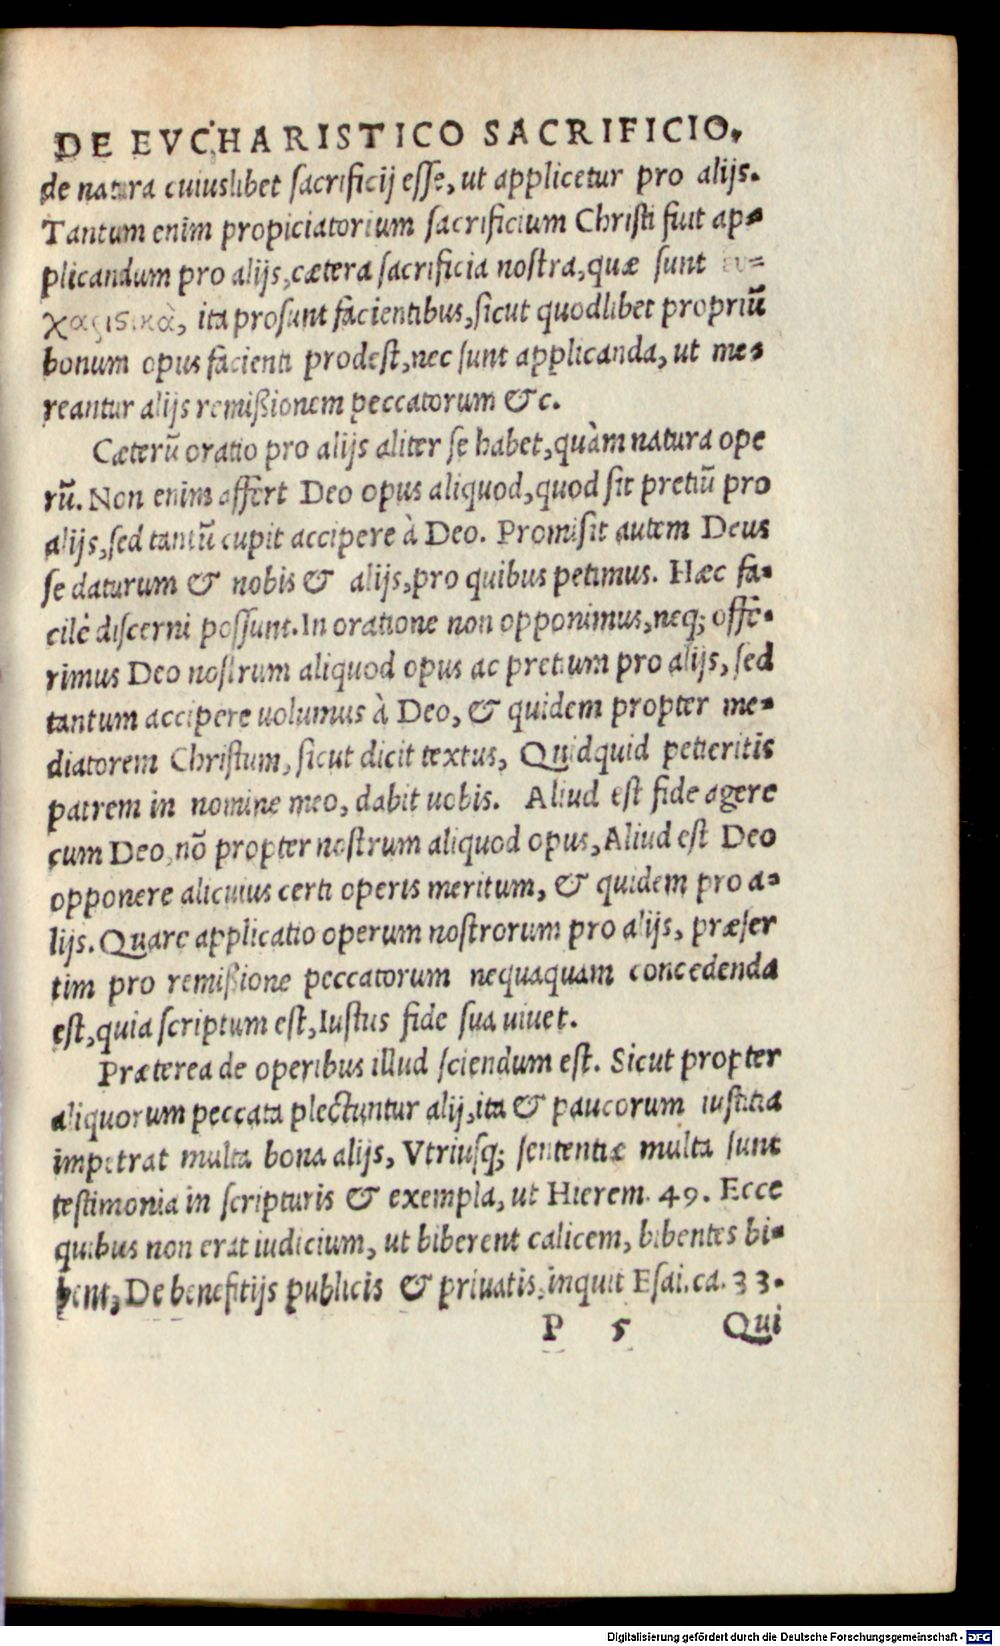 DE EVCHARISTICO SACRIFICIO,
de natura cuiuslibet sacrificij esse, ut applicetur pro alijs.
Tantum enim propiciatorium sacrificium Christi fuit ap-
plicandum pro alijs, cætera sacrificia nostra, quæ sunt ευ-
χαριστικὰ, ita prosunt facientibus, sicut quodlibet propriũ
bonum opus facienti prodest, nec sunt applicanda, ut me-
reantur alijs remißionem peccatorum &c.
Cæterũ oratio pro alijs aliter se habet, quàm natura ope
rũ. Non enim affert Deo opus aliquod, quod sit pretiũ pro
alijs, sed tantũ cupit accipere à Deo. Promisit autem Deus
se daturum & nobis & alijs, pro quibus petimus. Hæc fa-
cilè discerni possunt. In oratione non opponimus, neq; offe-
rimus Deo nostrum aliquod opus ac pretium pro alijs, sed
tantum accipere uolumus à Deo, & quidem propter me-
diatorem Christum, sicut dicit textus, Quidquid petieritis
patrem in nomine meo, dabit uobis. Aliud est fide agere
cum Deo, nõ propter nostrum aliquod opus, Aliud est Deo
opponere alicuius certi operis meritum, & quidem pro a-
lijs. Quare applicatio operum nostrorum pro alijs, præser
tim pro remißione peccatorum nequaquam concedenda
est, quia scriptum est, Iustus fide sua uiuet.
Præterea de operibus illud sciendum est. Sicut propter
aliquorum peccata plectuntur alij, ita & paucorum iustitia
impetrat multa bona alijs, Vtriusq; sententiæ multa sunt
testimonia in scripturis & exempla, ut Hierem. 49. Ecce
quibus non erat iudicium, ut biberent calicem, bibentes bi-
bent, De benefitijs publicis & priuatis, inquit Esai. ca. 33.
P 5 Qui
Digitalisierung gefördert durch die Deutsche Forschungsgemeinschaft - DFG